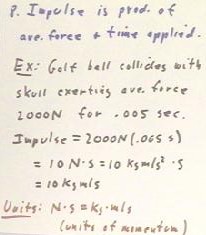 8. Impulse is prod. of
ave. force & time applied.
Ex: Golf ball collides with
skull exerting ave. force
2000N for .005 sec.
Impulse = 2000N (.005 s)
= 10 N·s = 10 kg m/s² · s
= 10 kg m/s
Units: N·s = kg·m/s
(units of momentum)